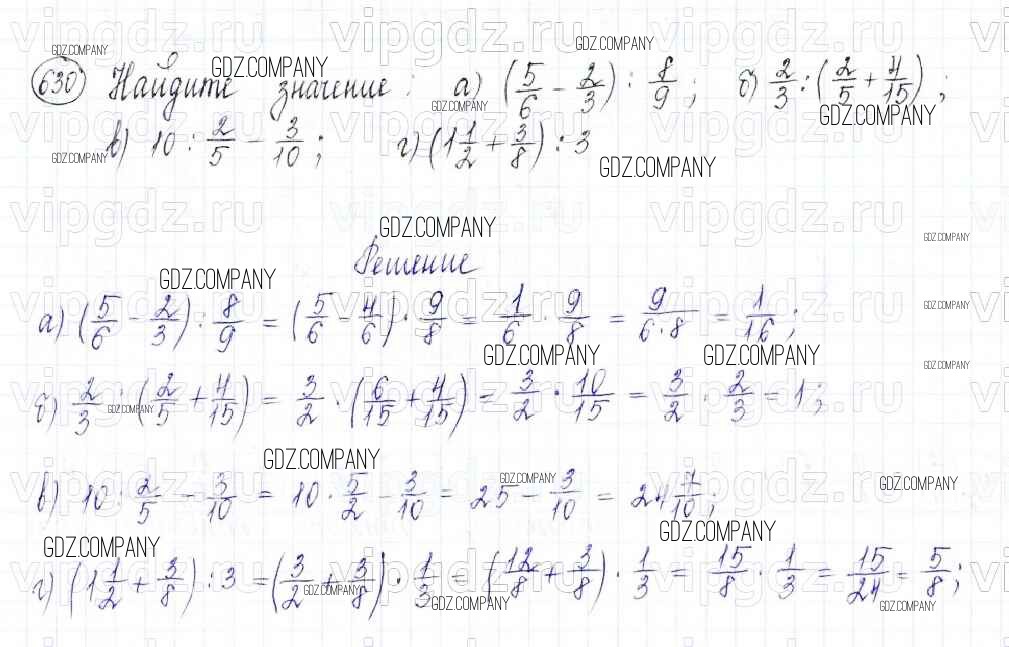 630 Найдите значение: а) (5/6 - 2/3) : 8/9; б) 2/3 : (2/5 + 4/15);
в) 10 : 2/5 - 3/10; г) (1 1/2 + 3/8) : 3
Решение
а) (5/6 - 2/3) : 8/9 = (5/6 - 4/6) · 9/8 = 1/6 · 9/8 = 9/(6·8) = 1/16;
б) 2/3 : (2/5 + 4/15) = 3/2 · (6/15 + 4/15) = 3/2 · 10/15 = 3/2 · 2/3 = 1;
в) 10 : 2/5 - 3/10 = 10 · 5/2 - 3/10 = 25 - 3/10 = 24 7/10;
г) (1 1/2 + 3/8) : 3 = (3/2 + 3/8) · 1/3 = (12/8 + 3/8) · 1/3 = 15/8 · 1/3 = 15/24 = 5/8;
GDZ.COMPANY
vipgdz.ru